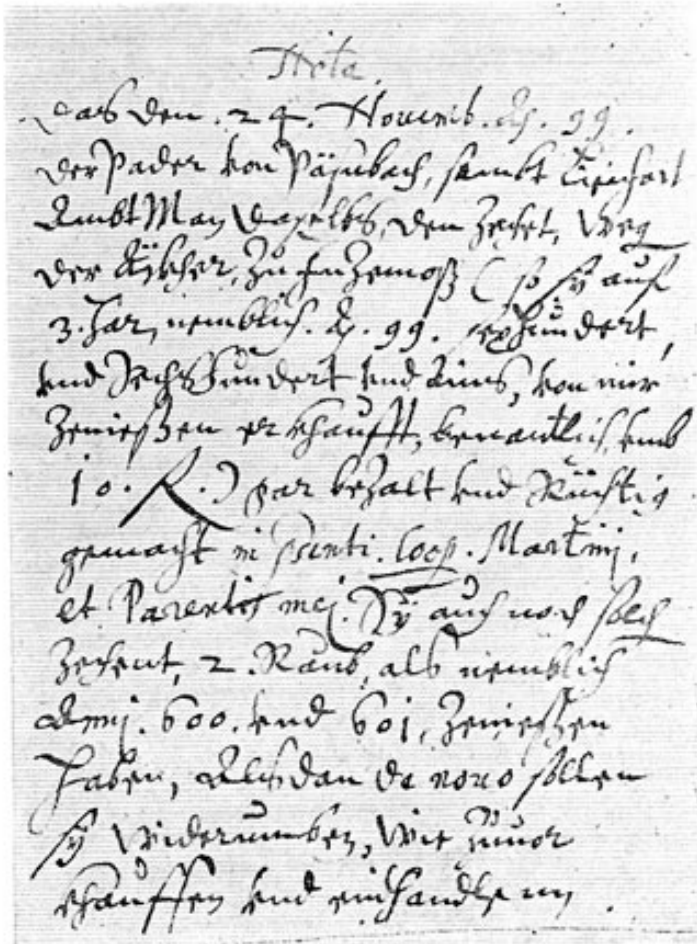 Nota
das den . 24 . Nouemb. Ao . 99 .
der Pader von Päsnbach, sambt
Ambt Man daselbs, den Zehet, weg
der Äkher, zu ( so sÿ auf
3. Jar, nemblich . Ao . 99 . sexhundert,
vnd Sechshundert vnd Ains, von mir
Zeniessen erkhaufft, benantlich, vmb
10 . f . ) par bezalt vnd Richtig
gemacht in psenti . Coop . Martinj,
et Parentis mej. Sÿ auch noch solch
Zehent, 2 . Raub, als nemblich
Annj . 600 . vnd 601, Zeniessen
haben, Alsdan de nouo sollen
sÿ widerumben, wie zuuor
khauffen vnd einhandlenn .